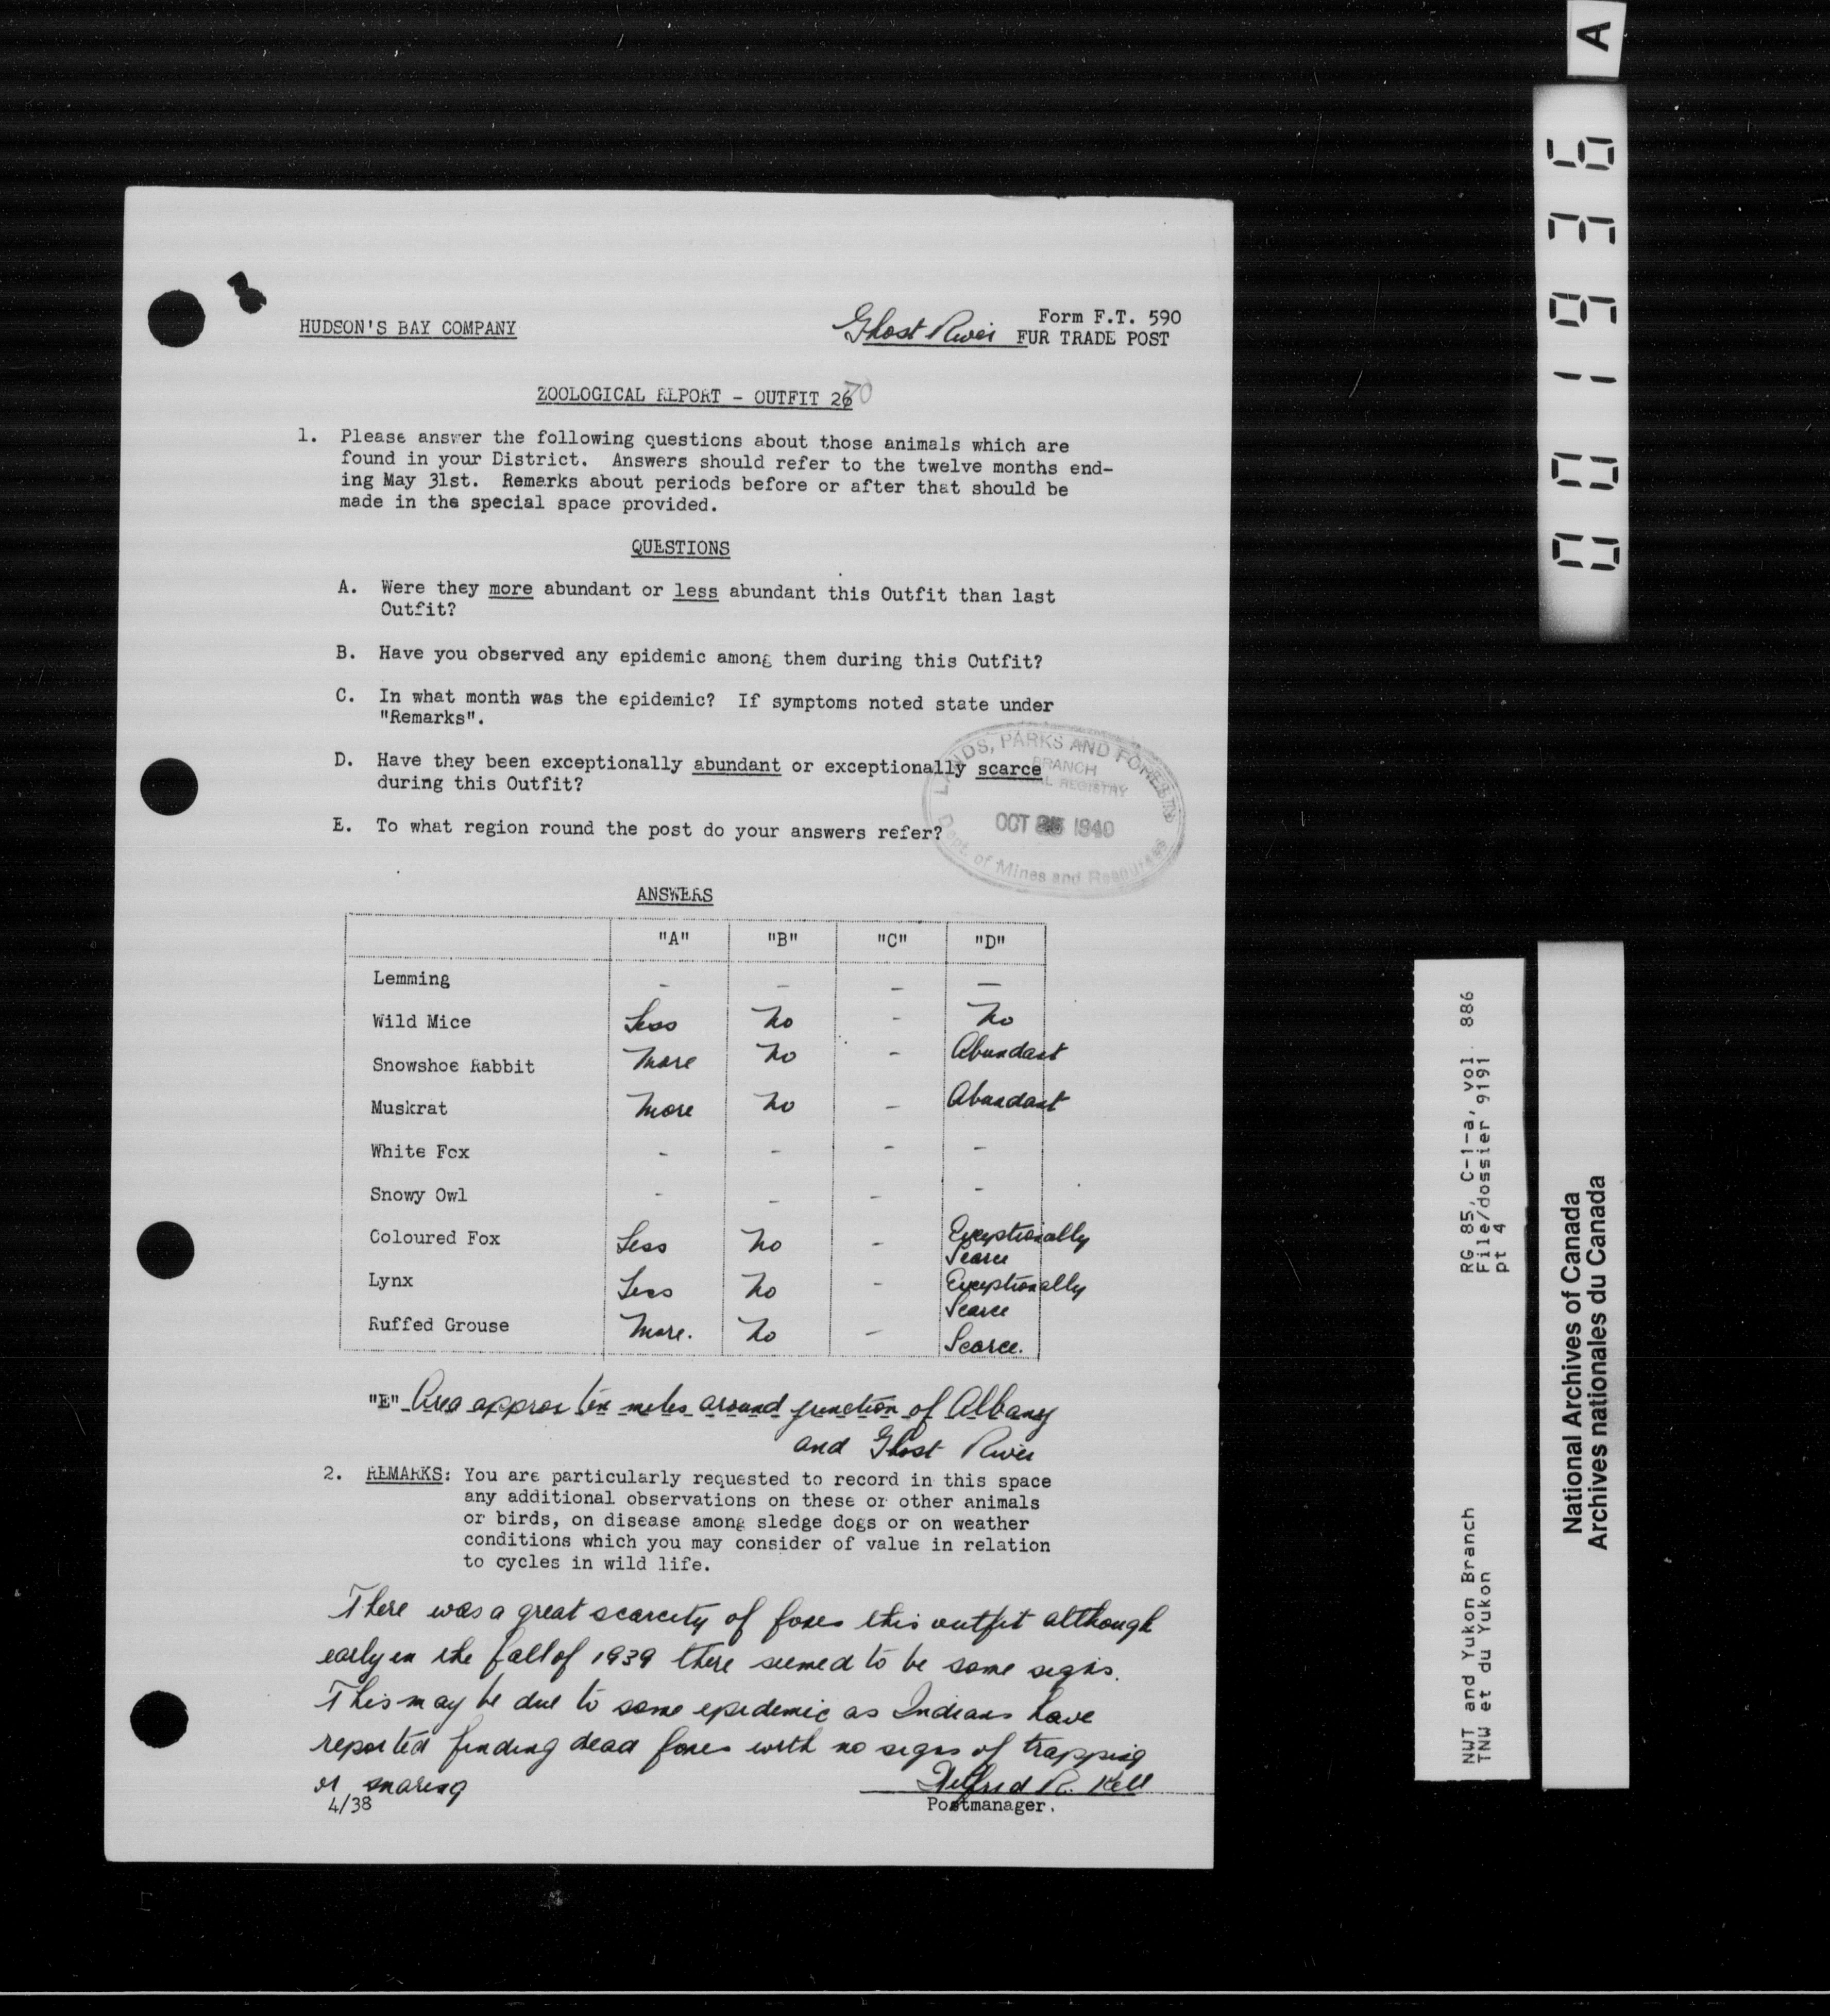 A
001936
Form F.T. 590
HUDSON'S BAY COMPANY
Ghost River FUR TRADE POST
ZOOLOGICAL REPORT - OUTFIT 270
1. Please answer the following questions about those animals which are
found in your District. Answers should refer to the twelve months end-
ing May 31st. Remarks about periods before or after that should be
made in the special space provided.
QUESTIONS
A. Were they more abundant or less abundant this Outfit than last
Outfit?
B. Have you observed any epidemic among them during this Outfit?
C. In what month was the epidemic? If symptoms noted state under
"Remarks".
D. Have they been exceptionally abundant or exceptionally scarce
during this Outfit?
E. To what region round the post do your answers refer?
LANDS, PARKS AND FORESTS
BRANCH
REGISTRY
OCT 1940
Dept. of Mines and Resources
ANSWERS
"A" "B" "C" "D"
Lemming - - - -
Wild Mice Less No - No
Snowshoe Rabbit More No - Abundant
Muskrat More No - Abundant
White Fox - - - -
Snowy Owl - - - -
Coloured Fox Less No - Exceptionally
Scarce
Lynx Less No - Exceptionally
Scarce
Ruffed Grouse More. No - Scarce.
"E" Area approx ten miles around junction of Albany
and Ghost River
2. REMARKS: You are particularly requested to record in this space
any additional observations on these or other animals
or birds, on disease among sledge dogs or on weather
conditions which you may consider of value in relation
to cycles in wild life.
There was a great scarcity of foxes this outfit although
early in the fall of 1939 there seemed to be some signs.
This may be due to some epidemic as Indians have
reported finding dead foxes with no signs of trapping
or snaring
Wilfred R. Kell
4/38
Postmanager.
RG 85, C-1-a, vol. 886
File/dossier 9191
pt 4
NWT and Yukon Branch
TNW et du Yukon
National Archives of Canada
Archives nationales du Canada